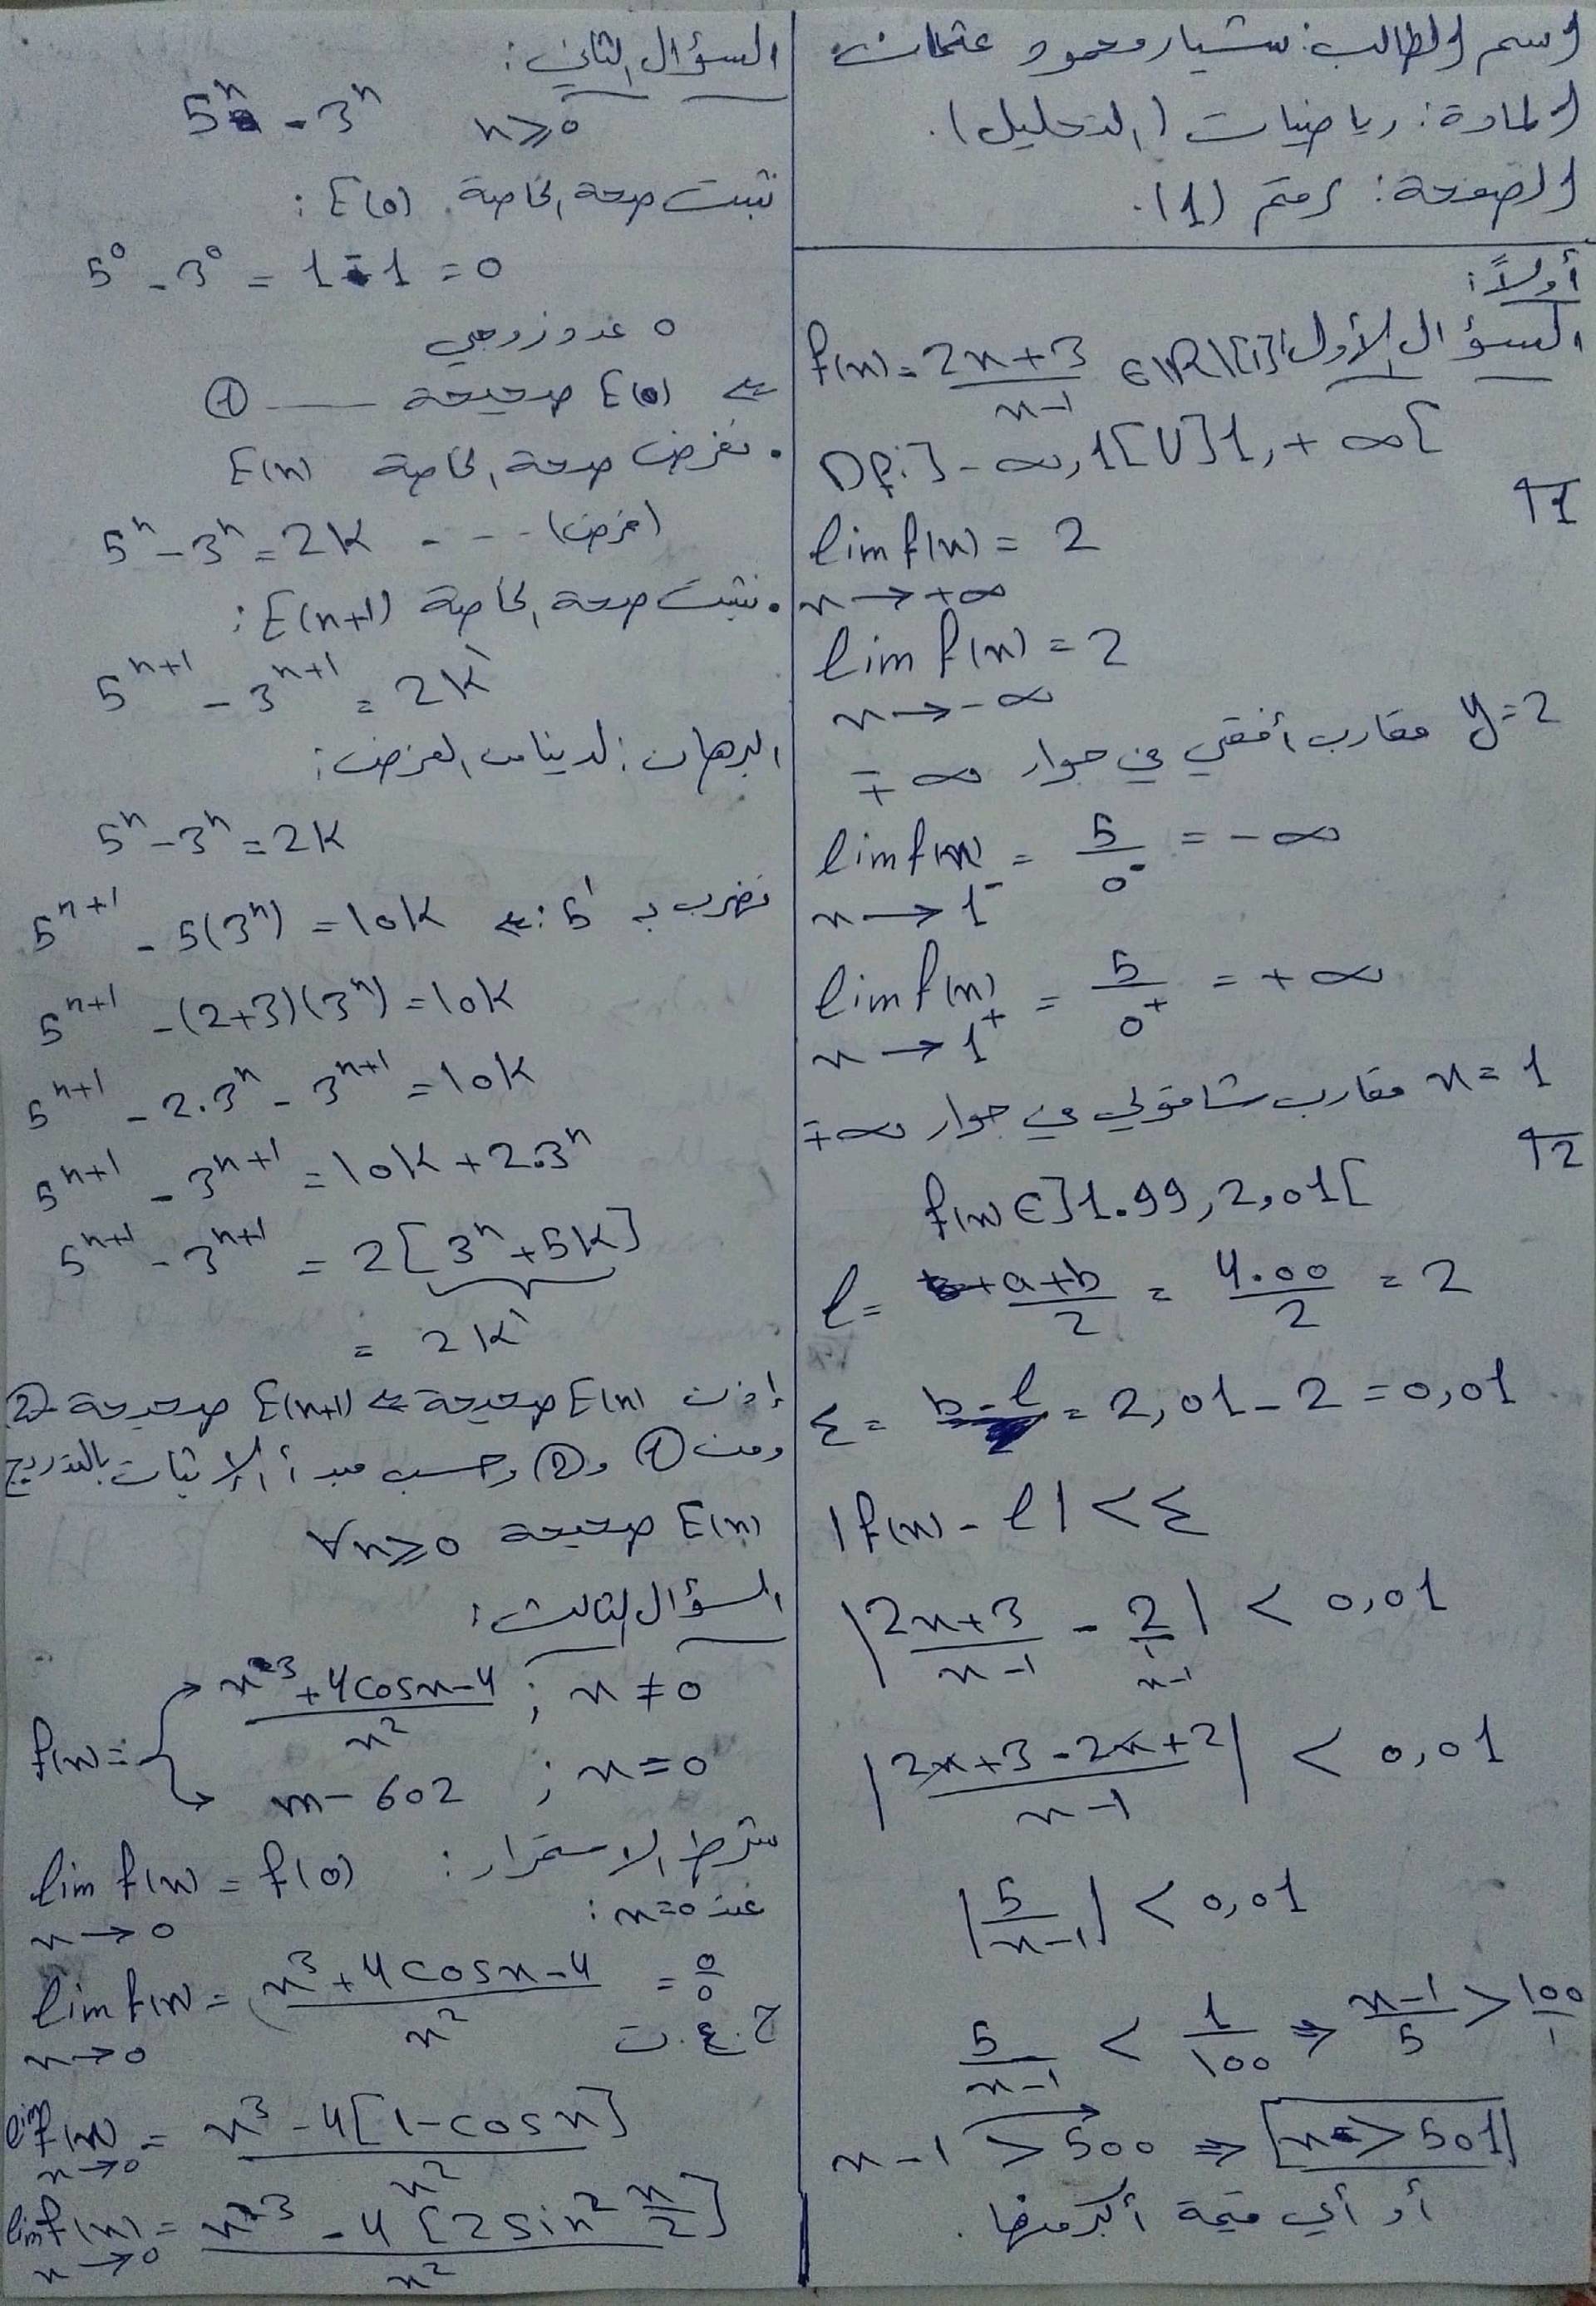 اسم الطالب: ستيار محمود عثمان
المادة: رياضيات (التحليل).
الصفحة: رقم (1).
أولاً:
السؤال الأول: f(x) = \frac{2x+3}{x-1} ∈ R\{1}
Df: ]-∞, 1[ U ]1, +∞[
T1
lim f(x) = 2
x → +∞
lim f(x) = 2
x → -∞
y = 2 مقارب أفقي في جوار ∓∞
lim f(x) = \frac{5}{0^-} = -∞
x → 1^-
lim f(x) = \frac{5}{0^+} = +∞
x → 1^+
x = 1 مقارب شاقولي في جوار ∓∞
T2
f(x) ∈ ]1.99, 2,01[
l = \frac{a+b}{2} = \frac{4.00}{2} = 2
ε = b-l = 2,01 - 2 = 0,01
|f(x) - l| < ε
|\frac{2x+3}{x-1} - \frac{2}{1}| < 0,01
x-1
|\frac{2x+3-2x+2}{x-1}| < 0,01
|\frac{5}{x-1}| < 0,01
\frac{5}{x-1} < \frac{1}{100} ⇒ \frac{x-1}{5} > \frac{100}{1}
x-1 > 500 ⇒ x > 501
أو أي قيمة أكبر منها.
السؤال الثاني:
5^n - 3^n n ≥ 0
نثبت صحة الخاصة E(0):
5^0 - 3^0 = 1 - 1 = 0
0 عدد زوجي
⇐ E(0) صحيحة —— ①
• نفرض صحة الخاصة E(n)
5^n - 3^n = 2K - - - (فرض)
• نثبت صحة الخاصة E(n+1):
5^{n+1} - 3^{n+1} = 2K'
البرهان: لدينا من الفرض:
5^n - 3^n = 2K
نضرب بـ 5^1: ⇐ 5^{n+1} - 5(3^n) = 10K
5^{n+1} - (2+3)(3^n) = 10K
5^{n+1} - 2.3^n - 3^{n+1} = 10K
5^{n+1} - 3^{n+1} = 10K + 2.3^n
5^{n+1} - 3^{n+1} = 2[3^n + 5K]
= 2K'
إذن E(n) صحيحة ⇐ E(n+1) صحيحة - ②
ومن ① و② وحسب مبدأ الإثبات بالتدريج
E(n) صحيحة ∀n ≥ 0
السؤال الثالث:
f(x) = { \frac{x^3+4cosx-4}{x^2} ; x ≠ 0
m - 602 ; x = 0
شرط الاستمرار: lim f(x) = f(0)
x → 0
عند x=0:
lim f(x) = \frac{x^3+4cosx-4}{x^2} = \frac{0}{0}
x → 0
ح.ع.ت
lim f(x) = \frac{x^3-4[1-cosx]}{x^2}
x → 0
lim f(x) = \frac{x^3-4[2sin^2\frac{x}{2}]}{x^2}
x → 0